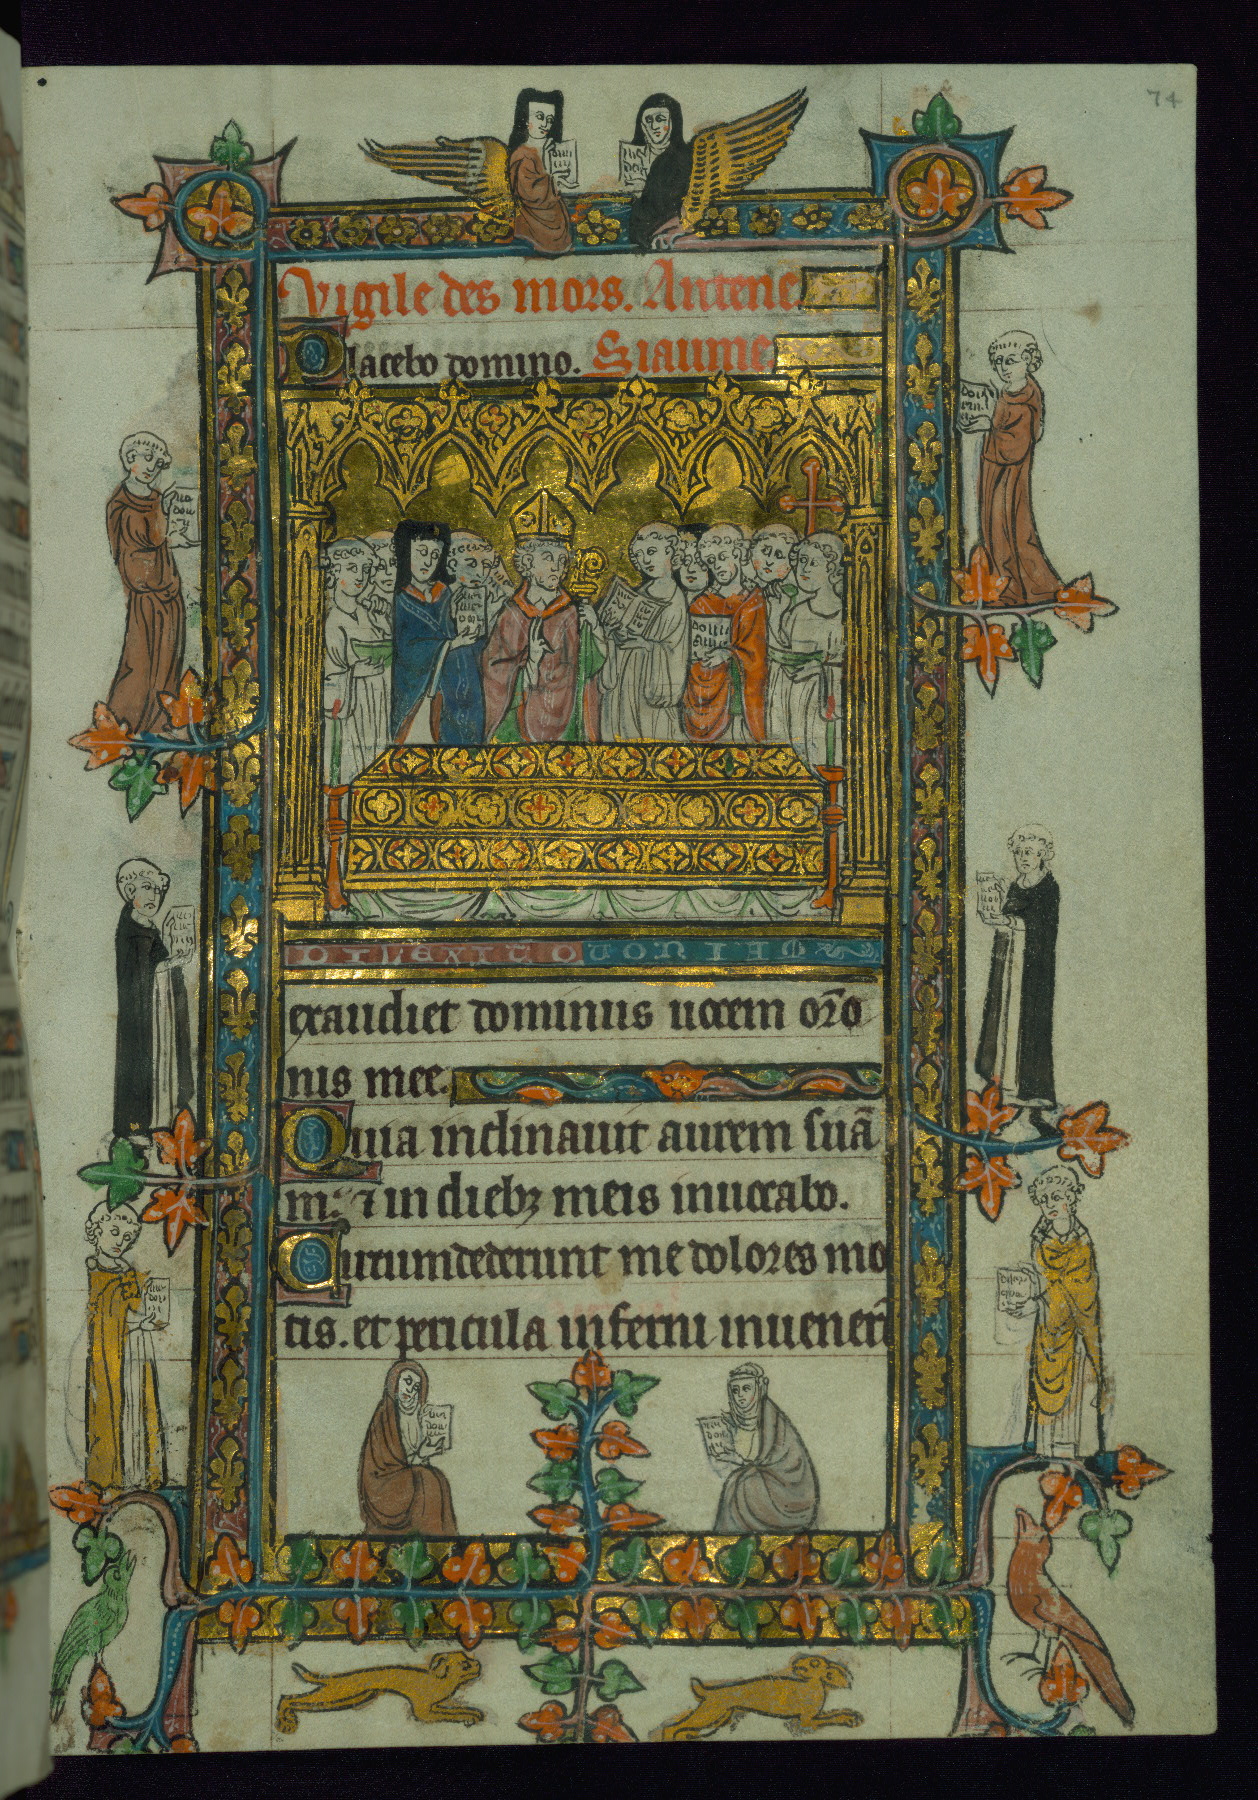 74
Vigile des mors. Antene.
Placebo domino. Siaume.
DILEXI QUONIAM
exaudiet dominus uocem or̅o
nis mee.
Quia inclinauit aurem suā
m. ⁊ in diebꝫ meis inuocabo.
Circumdederunt me dolores mo
tis. et pericula inferni inuener̅